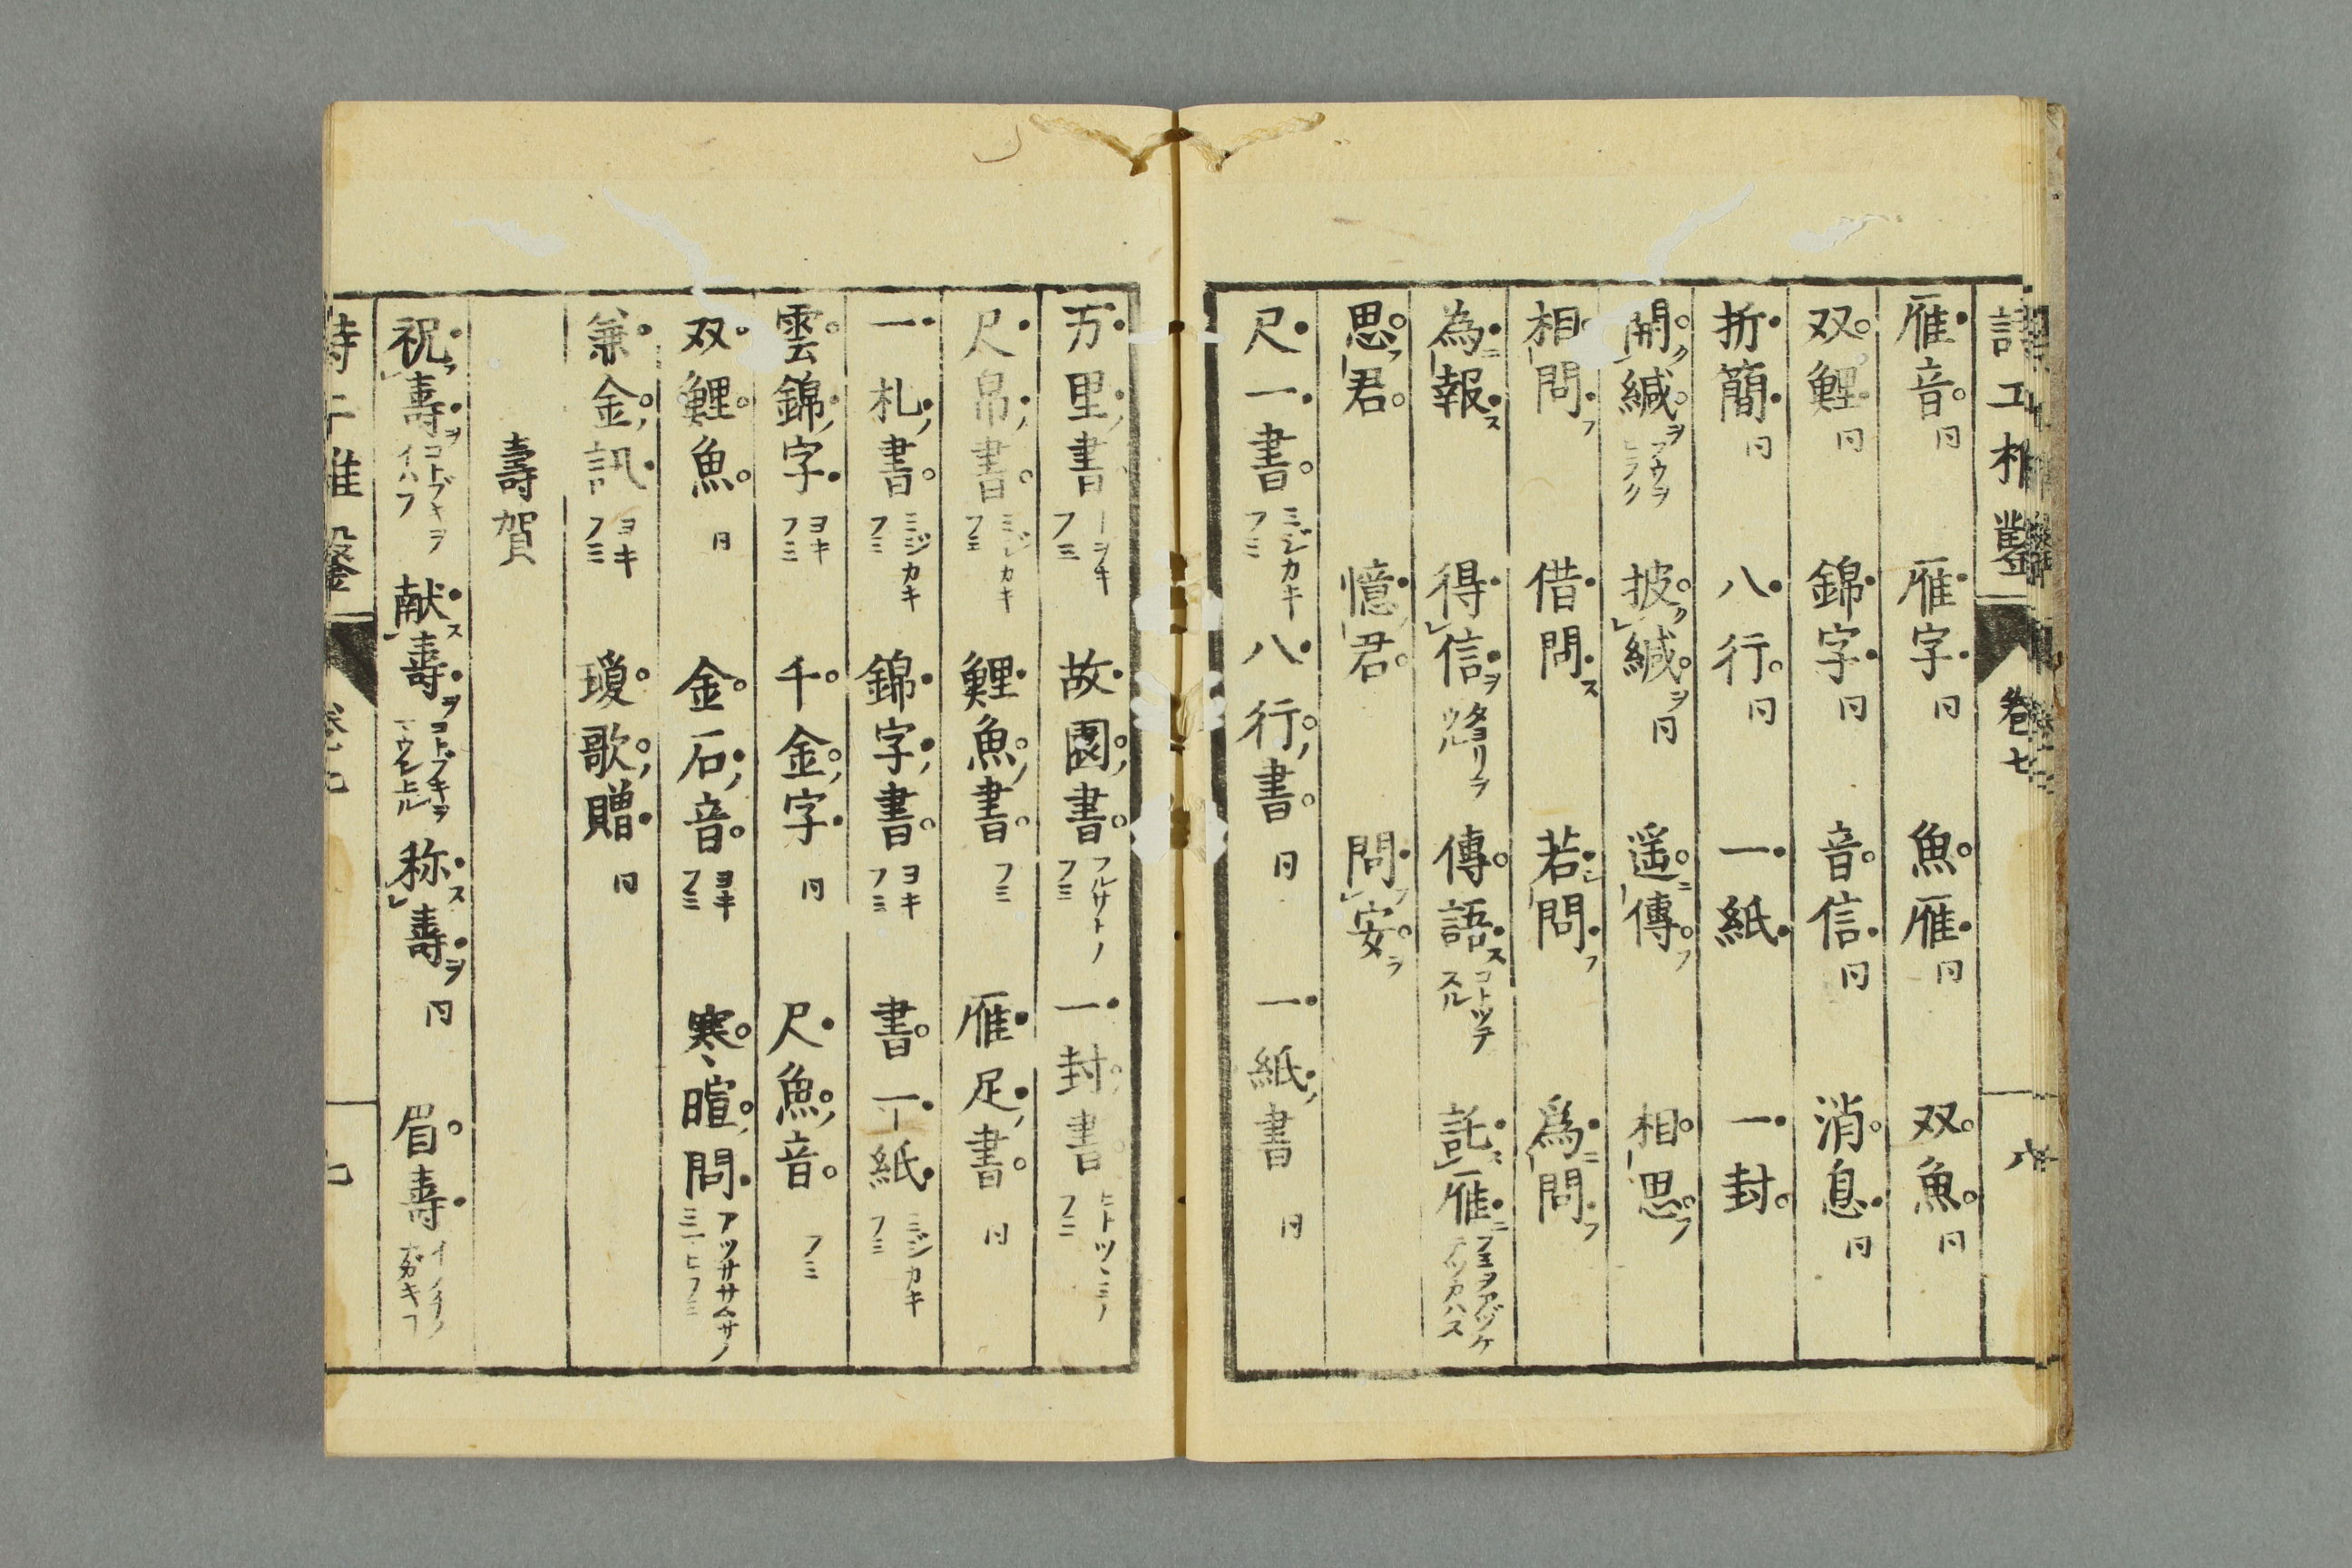 雁音 同 雁字 同 魚雁 同 双魚 同
双鯉 同 錦字 同 音信 同 消息 同
折簡 同 八行 同 一紙 一封
開ク緘ヲ フウヲ ヒラク 披ク緘ヲ 同 遥ニ傳フ 相思フ
相問フ 借問ス 若シ問フ 為ニ問フ
為ニ報ス 得信ヲ 傳語ス コトツテ スル 託ス雁ニ フミヲアヅケ テツカハス
思フ君 憶君 問フ安ヲ
尺一書 ミジカキ フミ 八行ノ書 同 一紙ノ書 同
万里ノ書 フミ 故園ノ書 フルサトノ フミ 一封ノ書 ヒトツヽミノ フミ
尺帛ノ書 ミジカキ フミ 鯉魚ノ書 フミ 雁足ノ書 同
一札ノ書 ミジカキ フミ 錦字ノ書 ヨキ フミ 書一紙 ミジカキ フミ
雲錦ノ字 ヨキ フミ 千金ノ字 同 尺魚ノ音 フミ
双鯉魚 同 金石ノ音 ヨキ フミ 寒暄ノ問 アツササムサノ
兼金ノ訊 ヨキ フミ 瓊歌ノ贈 同
壽賀
祝フ壽ヲ コトブキヲ イハフ 献ス壽ヲ コトブキヲ 称ス壽ヲ 同 眉壽
卷七
八